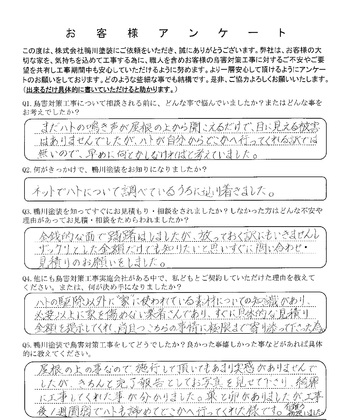 お客様アンケート
この度は、株式会社鴨川塗装にご依頼をいただき、誠にありがとうございます。弊社は、お客様の大
切な家を、気持ちを込めて工事する為に、職人を含めお客様の鳥害対策工事に対するご不安やご要
望を共有し工事期間中も安心していただけるように努めます。より一層安心して頂けるようにアンケー
トのお願いをしております。どのような些細な事でも結構です。是非、ご協力よろしくお願いします。
(出来るだけ具体的に書いていただけると助かります。)
Q1.鳥害対策工事について相談される前に、どんな事で悩んでいましたか?またはどんな事を
お考えでしたか?
まだハトの鳴き声が屋根の上から聞こえるだけで、目に見える被害
はありませんでしたが、ハトが自分からどこかへ行ってくれる訳では
無いので、早めに何とかしなければと考えていました。
Q2.何がきっかけで、鴨川塗装をお知りになりましたか?
ネットでハトについて調べているうちに辿り着きました。
Q3.鴨川塗装を知ってすぐにお見積もり・相談をされましたか?しなかった方はどんな不安や
理由があってお見積・相談をためらわれましたか?
金銭的な面で躊躇はしましたが、放っておく訳にもいきませんし
ザックリとした金額だけでも知りたいと思いすぐに問い合わせ・
見積りのお願いをしました。
Q4.他にも鳥害対策工事実施会社がある中で、私どもとご契約していただけた理由を教えて
ください。または、何が決め手になりましたか?
ハトの駆除以外に家に使われている素材についての知識があり、
必要以上に家を傷めない業者さんであり、すぐに具体的な見積り
金額も提示してくれ、尚且つこちらの事情に極限まで寄り添って下さった為
Q5.鴨川塗装で鳥害対策工事をしてどうでしたか?良かった事嬉しかった事などがあれば具体
的に教えてください。
屋根の上の事なので施行して頂いてもあまり実感がありませんで
したが、きちんと完了報告としてお写真を見せて下さり、綺麗
に工事してくれた事が分かりました。巣と卵がありましたが工事
後1週間程でハトも諦めてどこかへ行ってくれた様でも